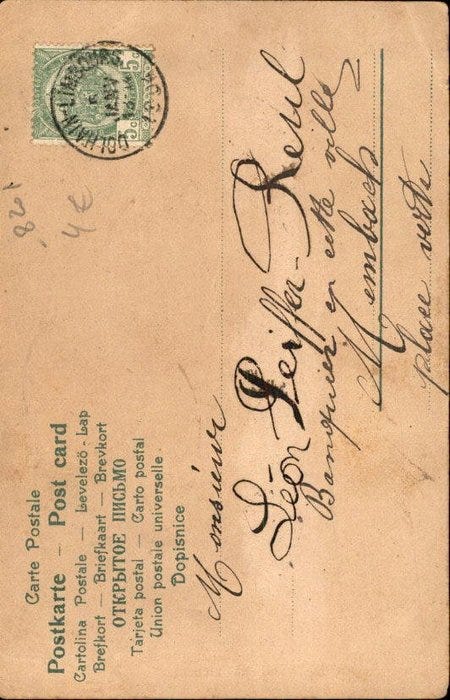 Carte Postale
Postkarte – Post card
Cartolina Postale – Levelező-Lap
Brefkort – Briefkaart – Brevkort
ОТКРЫТОЕ ПИСЬМО
Tarjeta postal – Carto postal
Union postale universelle
Dopisnice
DOLHAIN-LIMBOURG
5 5
Monsieur
Léon Peiffer-Reul
Banquier en cette ville
Membach
place verte
820'
4 €